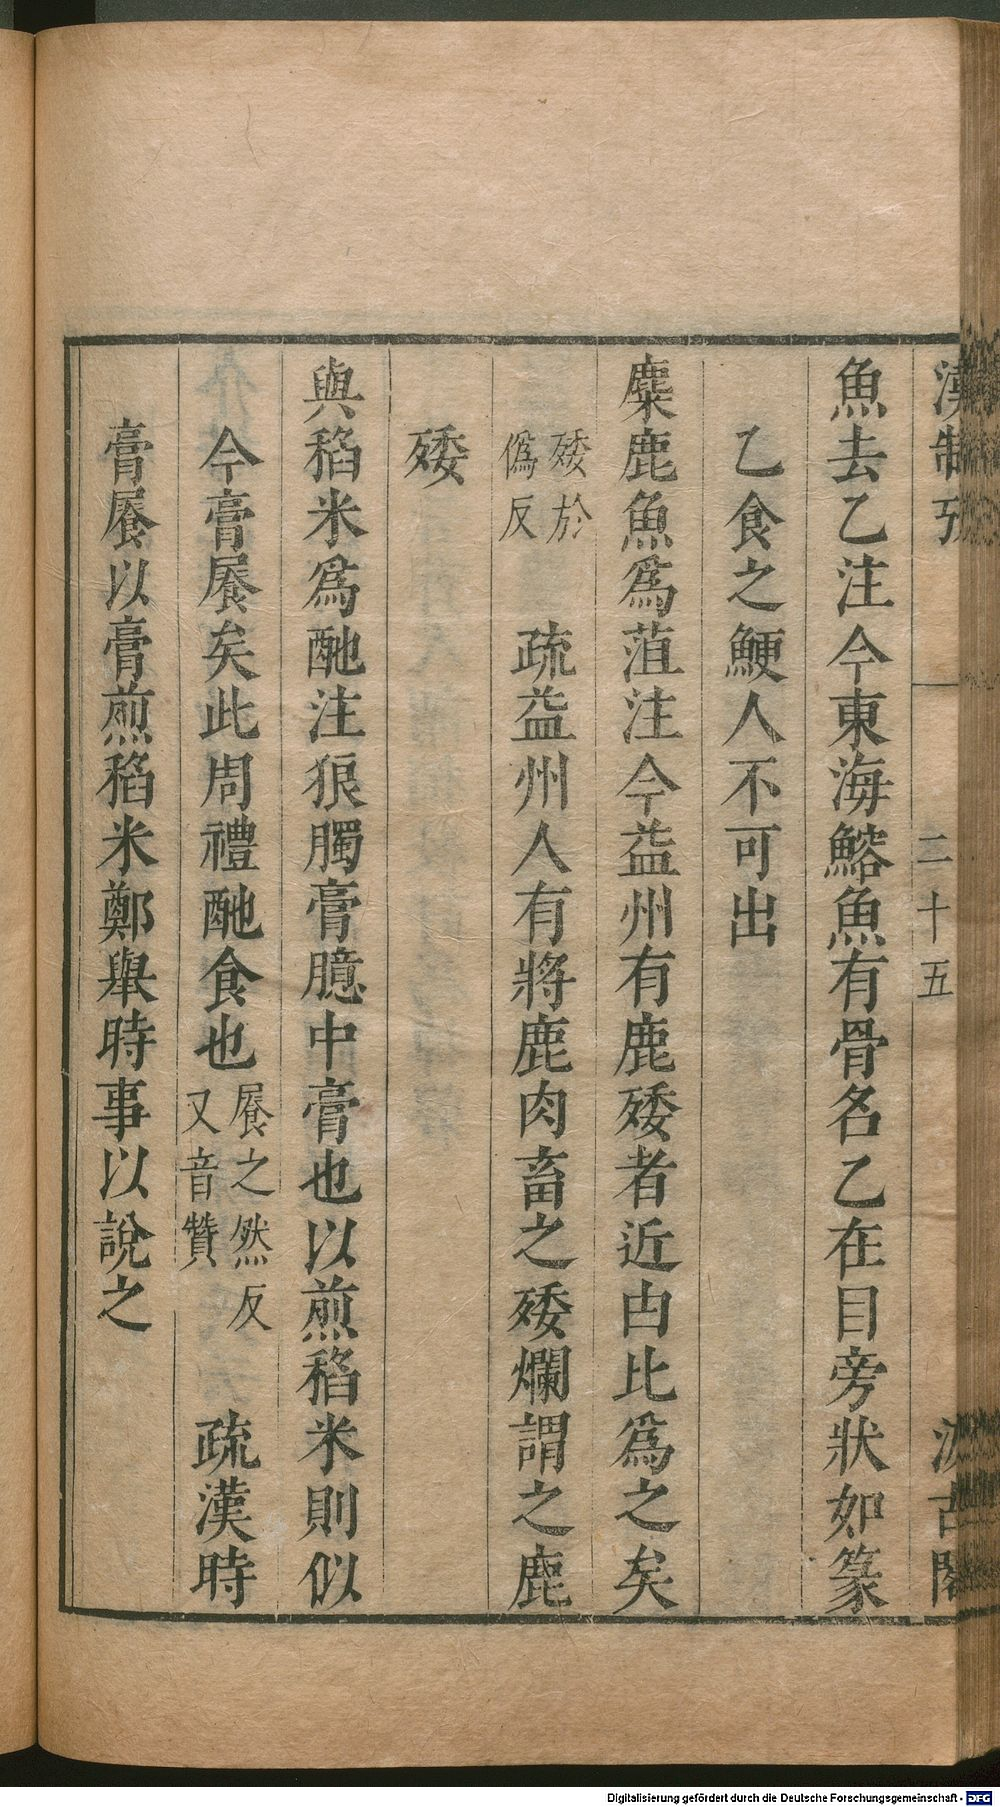 漢制攷
二十五
汲古閣
魚去乙注今東海鰫魚有骨名乙在目旁狀如篆
乙食之鯁人不可出
麋鹿魚為菹注今益州有鹿㱱者近由此為之矣
㱱於
偽反
疏益州人有將鹿肉畜之㱱爛謂之鹿
㱱
與稻米為酏注狼臅膏臆中膏也以煎稻米則似
今膏𡳐矣此周禮酏食也
𡳐之然反
又音贊
疏漢時
膏𡳐以膏煎稻米鄭舉時事以說之
Digitalisierung gefördert durch die Deutsche Forschungsgemeinschaft - DFG